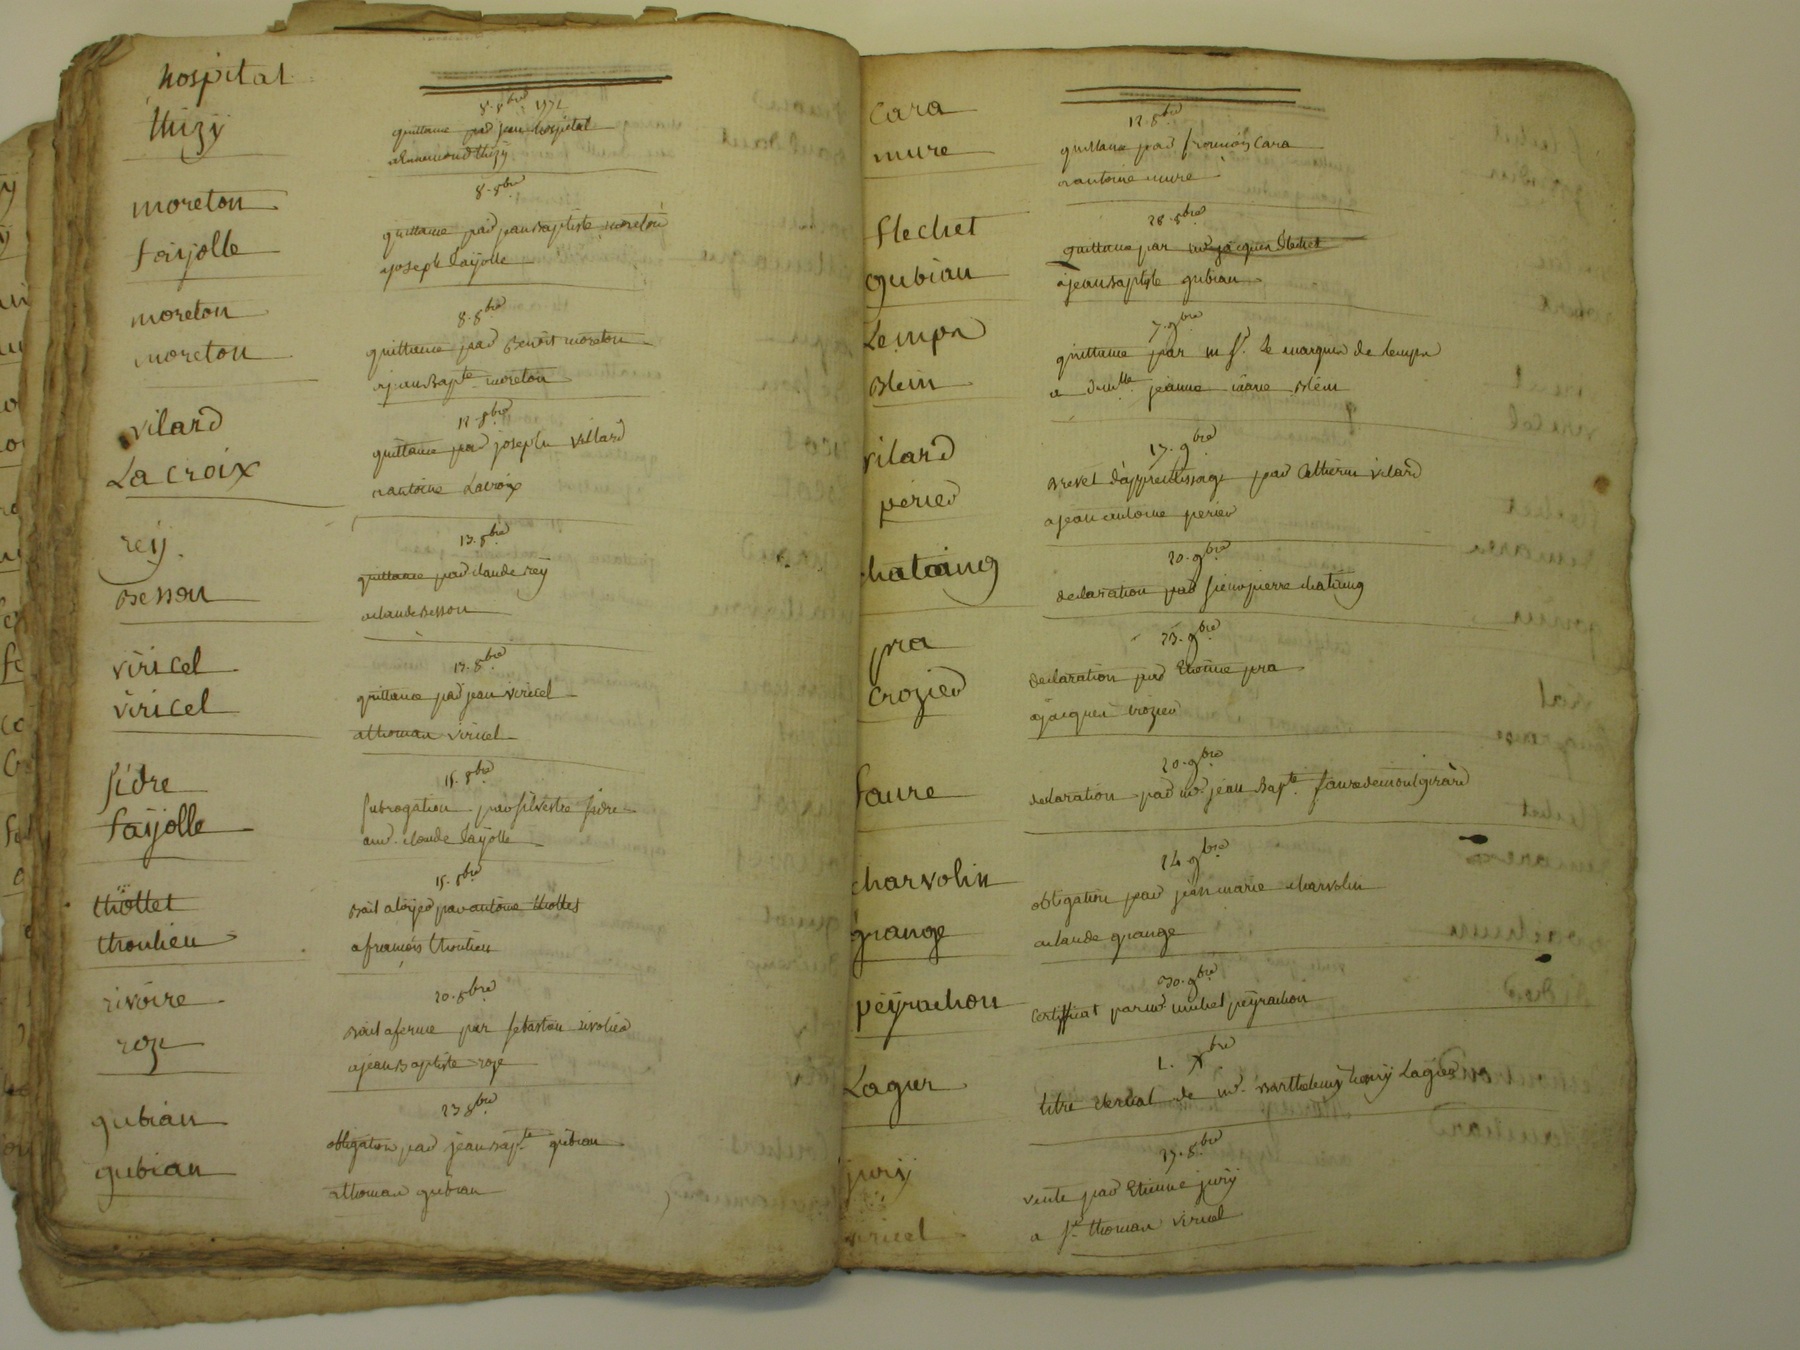 hospital
thizÿ
8. 8bre
quittance par jean hospital
a ennemond thizÿ
moreton
faÿjolle
8. 8bre
quittance par jean baptiste moreton
a joseph faÿolle
moreton
moreton
8. 8bre
quittance par Benoit moreton
a jean Bapte moreton
vilard
Lacroix
12. 8bre
quittance par joseph villard
a antoine Lacroix
reÿ
Besson
13. 8bre
quittance par claude reÿ
a claude Besson
viricel
viricel
13. 8bre
quittance par jean viricel
a thomas viricel
fidre
faÿjolle
15. 8bre
subrogation par silvestre fidre
a mr. claude faÿolle
thollet
thoulieu
15. 8bre
Bail a loÿer par antoine thollet
a francois thoulieu
rivoire
roze
20. 8bre
Bail a ferme par sebastien
a jean Baptiste roze
gubian
gubian
23 8bre
obligation par jean Bapte gubian
a thomas gubian
Cara
mure
12. 8bre
quittance par francois Cara
a antoine mure
flechet
gubian
28. 8bre
quittance par mr jacques flechet
a jean Baptiste gubian
Lemps
Blein
7. 9bre
quittance par mr le marquis de lemps
a dmlle jeanne marie Blein
vilard
perier
17. 9bre
Brevet d'apprentissage par Catherine vilard
a jean antoine perier
chataing
20. 9bre
declaration par sieur pierre chataing
pra
Crozier
23. 9bre
declaration par Etienne pra
a jacques crozier
faure
20. 9bre
declaration par mr jean Bapte faure de montgirard
charvolin
grange
24. 9bre
obligation par jean marie charvolin
a claude grange
peÿrachon
30. 9bre
Certifficat par mr michel peÿrachon
Lagier
1. Xbre
titre clerical de mr. Barthelemy henrÿ Lagier
jurÿ
viricel
vente par Etienne jurÿ
a sr thomas viricel